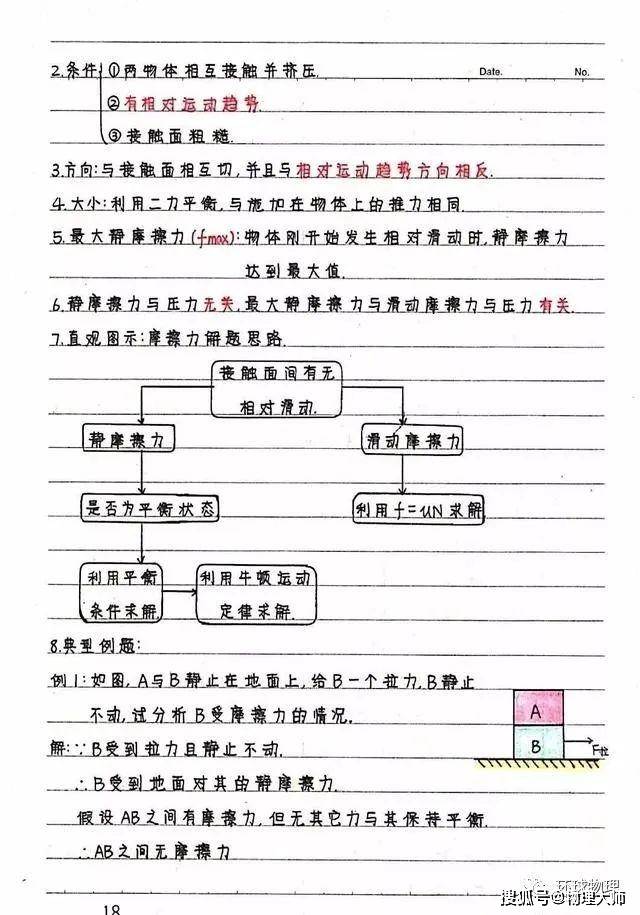 2.条件 ①两物体相互接触并挤压.
Date. No.
②有相对运动趋势.
③接触面粗糙.
3.方向:与接触面相互切,并且与相对运动趋势方向相反.
4.大小:利用二力平衡,与施加在物体上的推力相同.
5.最大静摩擦力(fmax):物体刚开始发生相对滑动时,静摩擦力
达到最大值.
6.静摩擦力与压力无关,最大静摩擦力与滑动摩擦力与压力有关.
7.直观图示:摩擦力解题思路.
接触面间有无
相对滑动.
静摩擦力
滑动摩擦力
是否为平衡状态
利用f=uN求解
利用平衡
条件求解
利用牛顿运动
定律求解.
8.典型例题:
例1:如图,A与B静止在地面上,给B一个拉力,B静止
不动,试分析B受摩擦力的情况.
A
B
F拉
解:∵B受到拉力且静止不动.
∴B受到地面对其的静摩擦力.
假设AB之间有摩擦力,但无其它力与其保持平衡.
∴AB之间无摩擦力
18
环球物理
搜狐号@物理大师